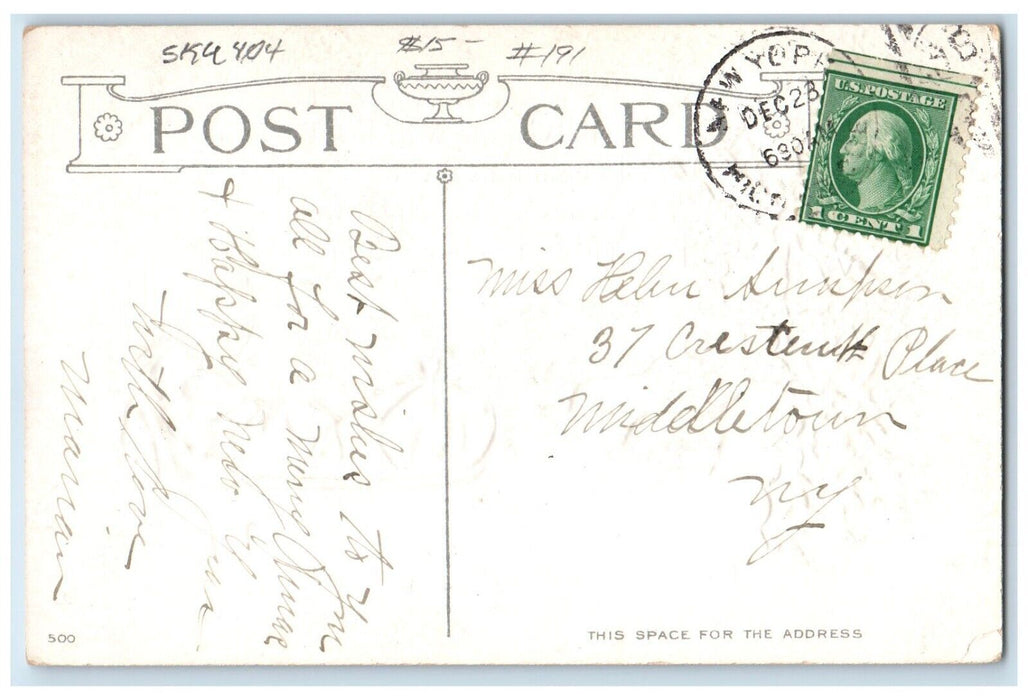 SKU 404 $15- #191
POST CARD
NEW YORK
DEC 28
630 AM
U.S. POSTAGE
1 CENT 1
Best wishes to you
all for a Merry Xmas
& Happy New Year
With Love
Marian
Miss Helen Simpson
37 Place
Middletown
NY
500
THIS SPACE FOR THE ADDRESS